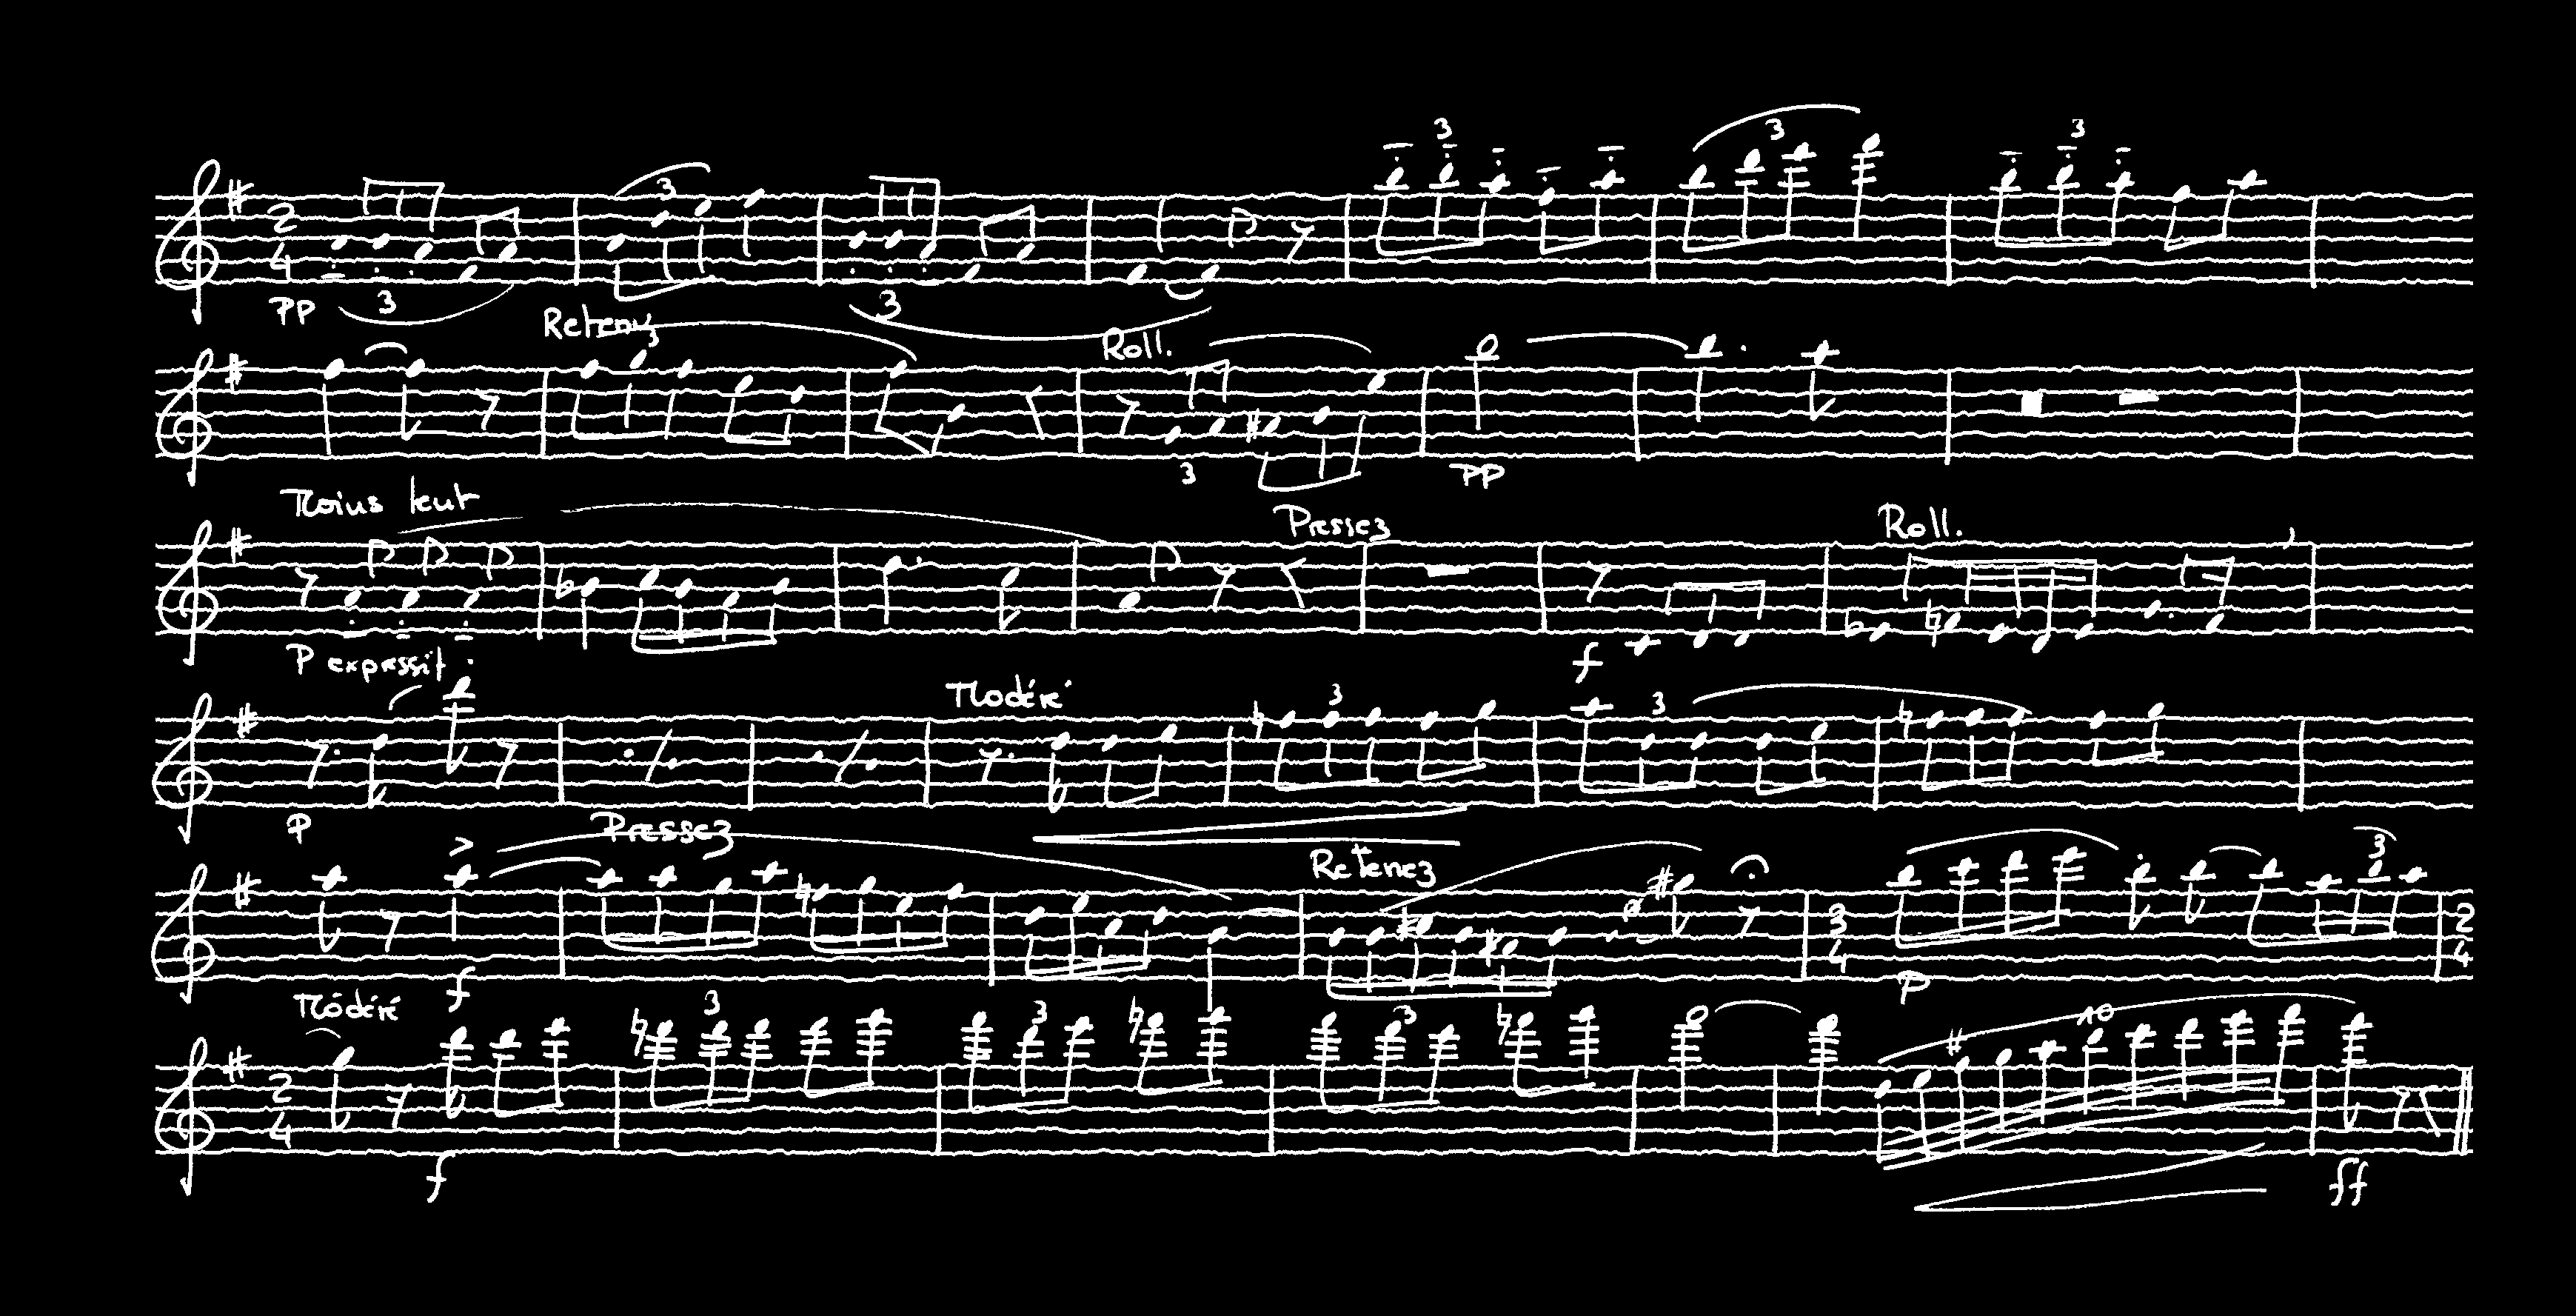 3 3 3 3 3 3
2 4
PP
Retenez Roll.
3 3
PP
Moins lent Pressez Roll.
P expressif f
Modéré 3 3
P Pressez
Retenez 3
3 4 2 4
f P
Modéré 3 3 3 10
2 4
f ff